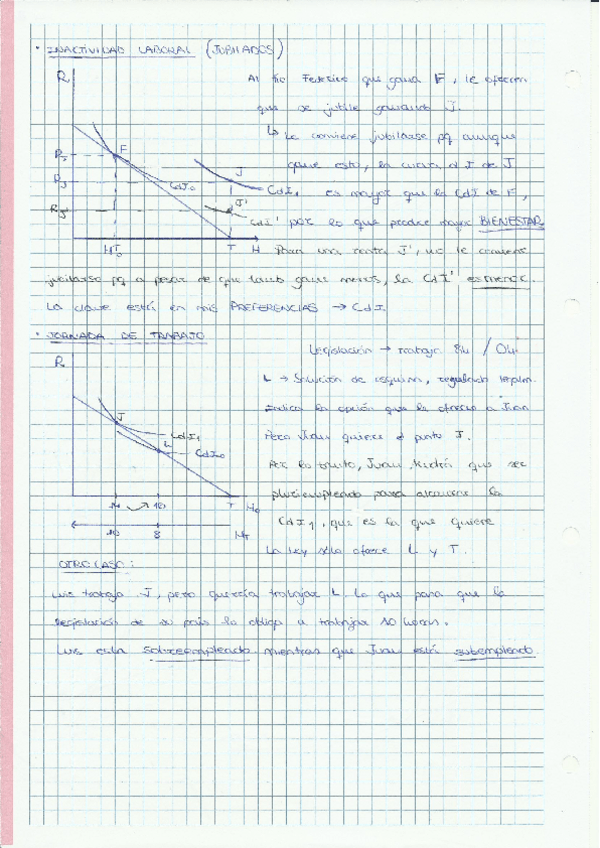 · INACTIVIDAD LABORAL (JORNADOS)
R
Al tío Federico que gana F, le ofrecen
que se jubile ganando J.
↳ Le conviene jubilarse pq aunque
gane esto, la curva d I de J
es mayor que la CdI de F,
por lo que produce mayor BIENESTAR.
Para una renta J', no le conviene
F
J
J'
CdI₀
CdI₁
CdI'
RJ
RJ'
HT₀
T
H
jubilarse pq a pesar de que gane menos, la CdI' es menor.
La clave está en mis PREFERENCIAS → CdI
· JORNADA DE TRABAJO
Legislación → trabajar 8h / 0h
R
L → Solución de esquina, regulando
indica la opción que le ofrece a Juan
Pero Juan quiere el punto J.
Por lo tanto, Juan tendrá que ser
pluriempleado para alcanzar la
CdI₁, que es la que quiere
La ley sólo ofrece L y T.
J
CdI₁
L
CdI₀
14
16
T
H₀
10
8
HT
OTRO CASO:
Luis trabaja J, pero querría trabajar L. Lo que pasa que la
legislación de su país lo obliga a trabajar 10 horas.
Luis está sobreempleado mientras que Juan está subempleado